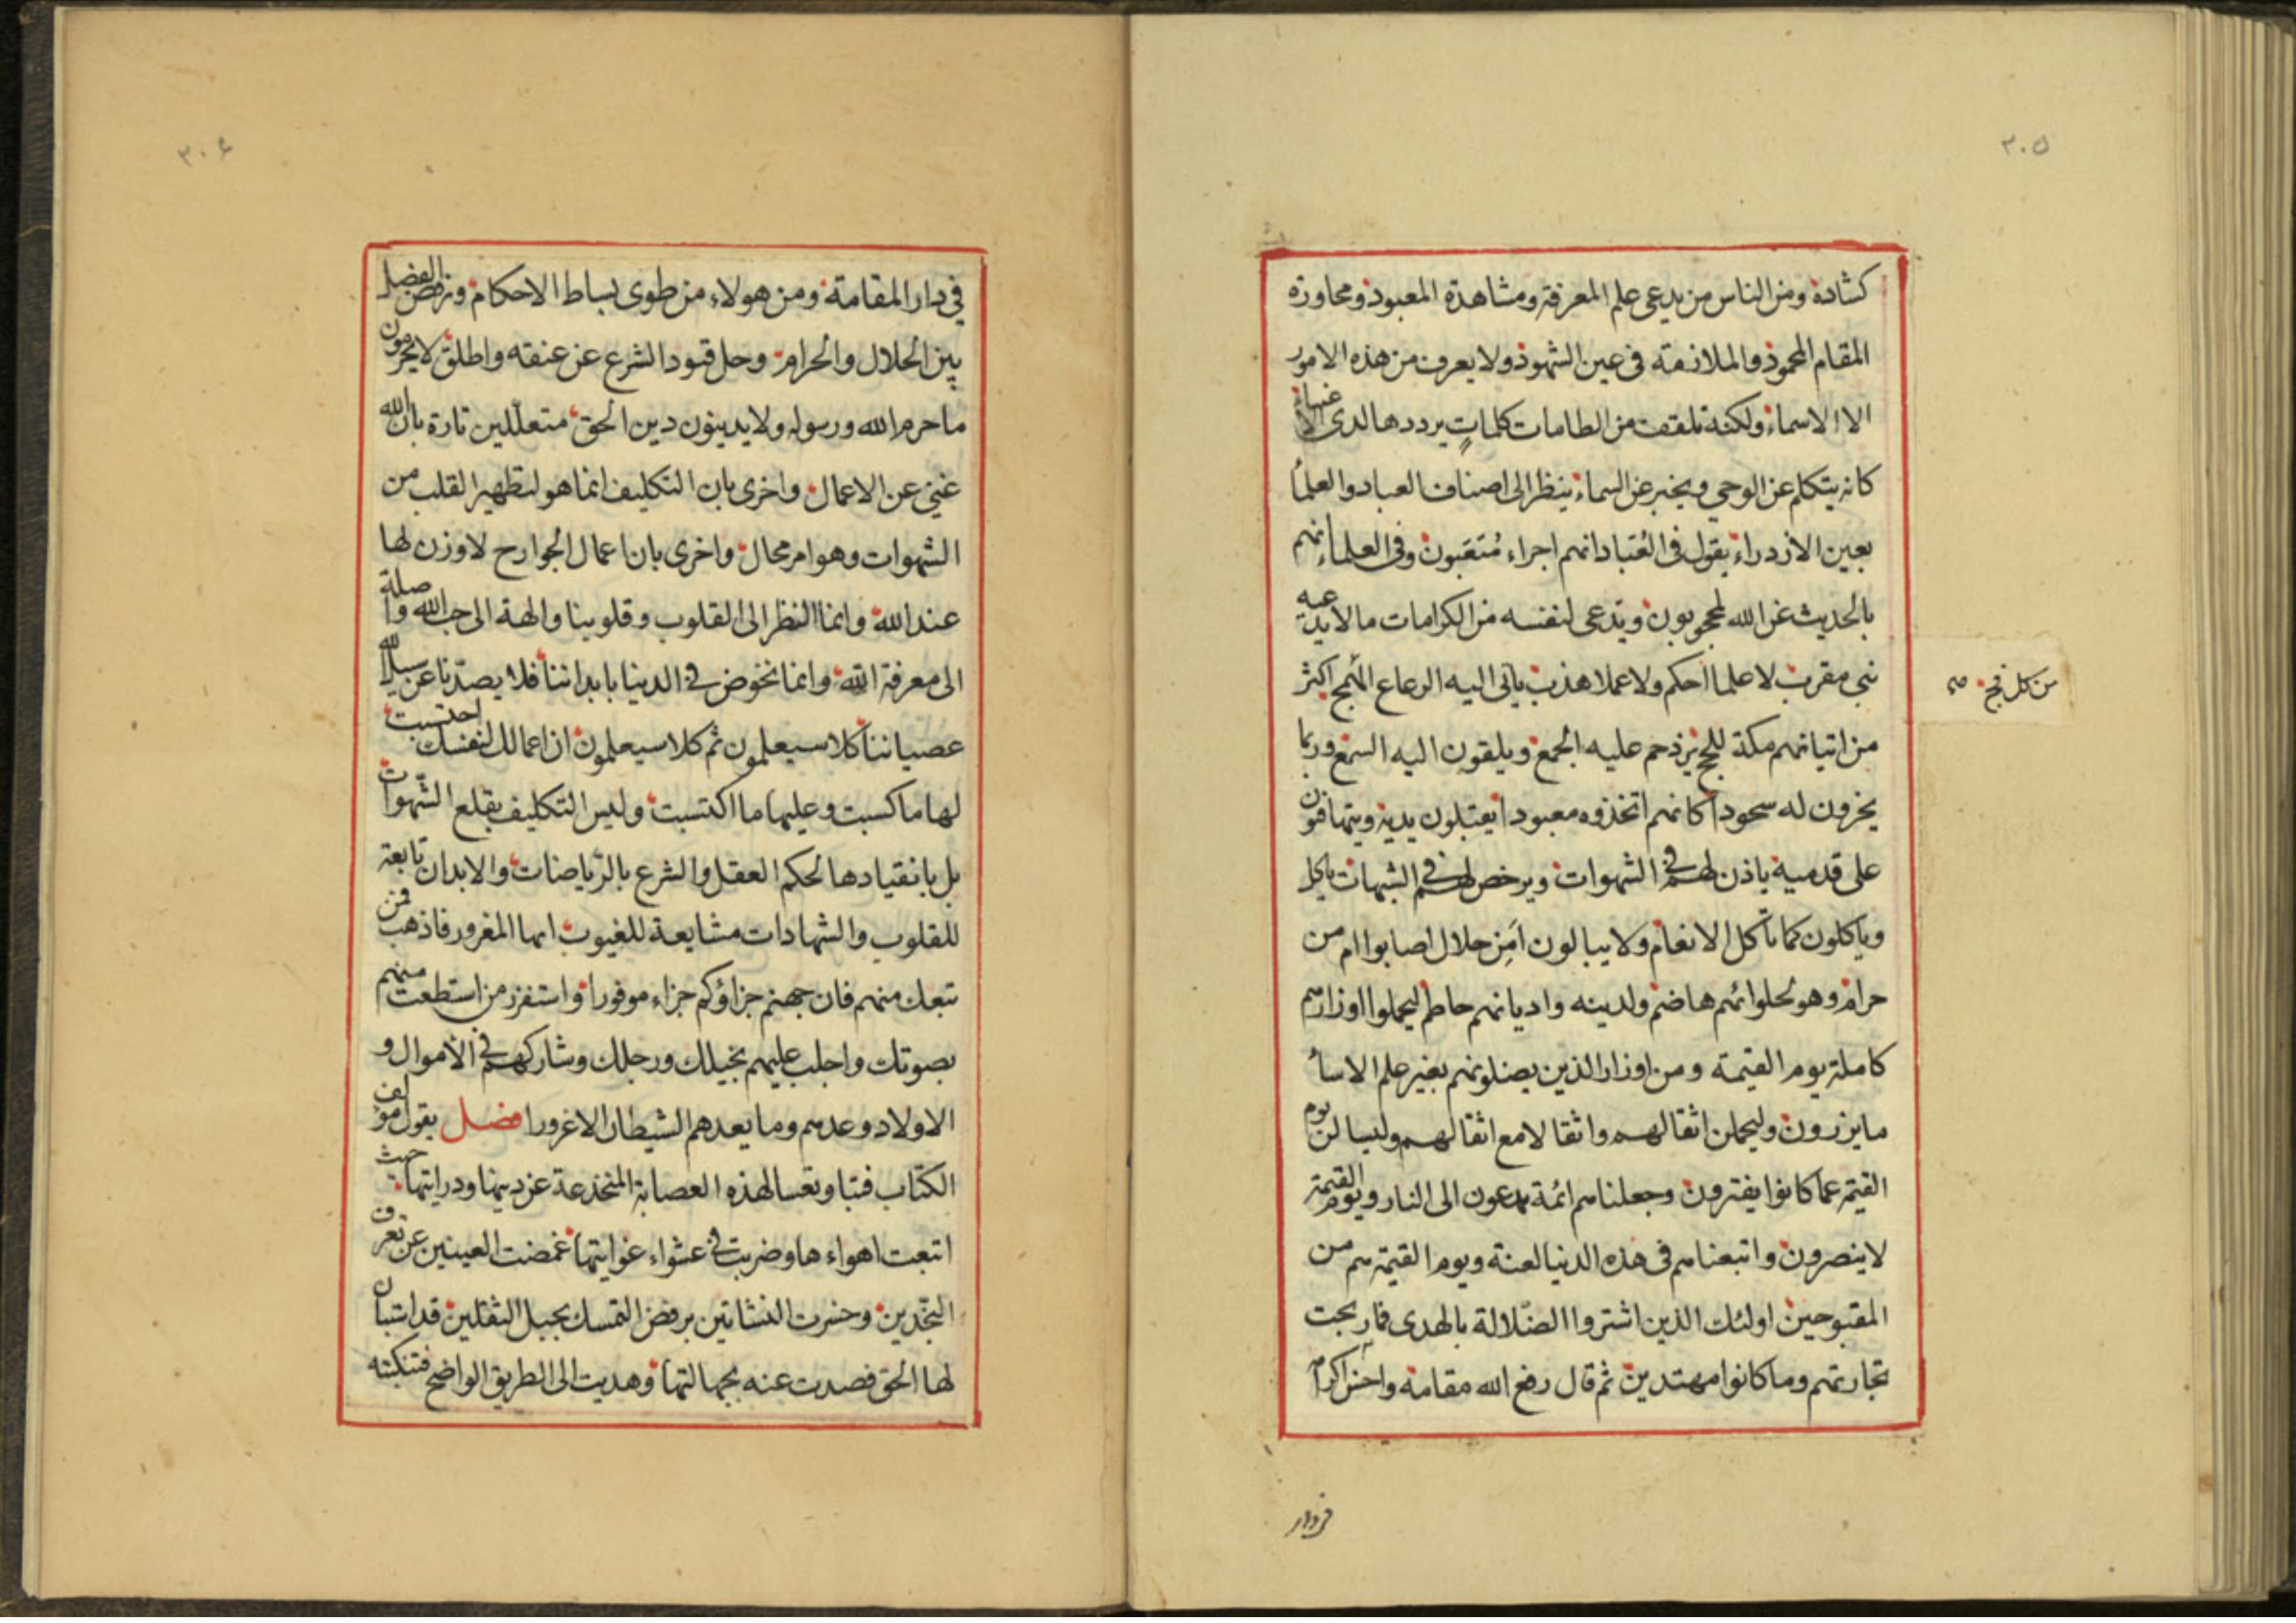 ٣٠٥
كشاده ومن الناس من يدعى علم المعرفة ومشاهدة المعبود ومجاورة
المقام المحمود والملازمة فى عين الشهود ولا يعرف من هذه الامور
الا الاسماء ولكنه تلقف من الطامات كلماتٍ يرددها لدى الاغنياء
كانه يتكلم عن الوحى ويخبر عن السماء ينظر الى اصناف العباد والعلماء
بعين الازدراء يقول فى العُبّاد انهم اجراء مُتعَبون وفى العلماء انهم
بالحديث عن الله لمحجوبون ويدعى لنفسه من الكرامات ما لا يدعيه
نبى مقرب لا علما احكم ولا عملا هذب ياتى اليه الرعاع الهمج اكثر
من كل فج صح
من اتيانهم مكة للحج يزدحم عليه الجمع ويلقون اليه السمع وربما
يخرون له سجودا كانهم اتخذوه معبودا يقبلون يديه ويتهافتون
على قدميه ياذن لهم فى الشهوات ويرخص لهم فى الشبهات ياكل
وياكلون كما تأكل الانعام ولا يبالون اَمِن حلال اصابوا ام من
حرام وهو لحلوائهم هاضم ولدينه واديانهم حاطم ليحملوا اوزارهم
كاملة يوم القيمة ومن اوزار الذين يضلونهم بغير علم الا ساء
ما يزرون وليحملن اثقالهم واثقالا مع اثقالهم وليسالن يوم
القيمة عما كانوا يفترون وجعلناهم ائمة يدعون الى النار ويوم القيمة
لا ينصرون واتبعناهم فى هذه الدنيا لعنة ويوم القيمة هم من
المقبوحين اولئك الذين اشتروا الضّلالة بالهدى فما ربحت
تجارتهم وما كانوا مهتدين ثم قال رفع الله مقامه واحسن اكرامه
فى دار
٣٠۶
فى دار المقامة ومن هولاء من طوى بساط الاحكام ورفض الفصل
بين الحلال والحرام وحل قيود الشرع عن عنقه واطلق لا يحرمون
ما حرم الله ورسوله ولا يدينون دين الحق متعلّلين تارة بان الله
غنى عن الاعمال واخرى بان التكليف انما هو لتطهير القلب من
الشهوات وهو امر محال واخرى بان اعمال الجوارح لا وزن لها
عند الله وانما النظر الى القلوب وقلوبنا والهة الى حب الله واصلة
الى معرفة الله وانما نخوض فى الدنيا بابداننا فلا يصدّنا عن سبيل الله
عصياننا كلا سيعلمون ثم كلا سيعلمون ان اعمالك لنفسك احتسبت
لها ما كسبت وعليها ما اكتسبت وليس التكليف بقلع الشّهوات
بل بانقيادها لحكم العقل والشرع بالرّياضات والابدان تابعة
للقلوب والشهادات مشايعة للغيوب ايها المغرور فاذهب فمن
تبعك منهم فان جهنم جزاؤكم جزاء موفورا واستفزز من استطعت منهم
بصوتك واجلب عليهم بخيلك ورجلك وشاركهم فى الاموال و
الاولاد وعدهم وما يعدهم الشيطان الا غرورا فصل يقول مؤلف
الكتاب فتبا وتعسا لهذه العصابة المنخدعة عن دينها ودرايتها حيث
اتبعت اهواءها وضربت فى عشواء غوايتها غمضت العينين عن تعرف
النّجدين وخسرت النشاتين برفض التمسك بحبل الثقلين قد استبان
لها الحق فصدت عنه بجهالتها وهديت الى الطريق الواضح فتنكبته